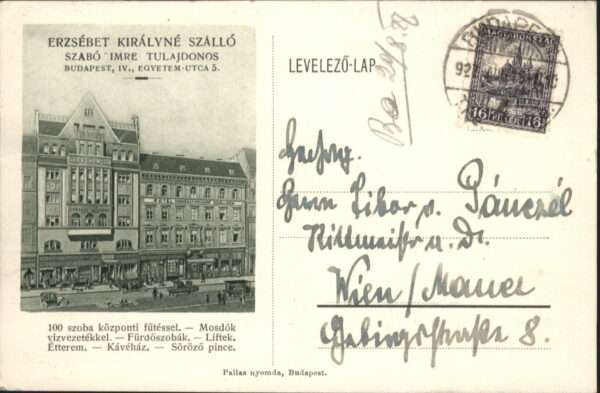 ERZSÉBET KIRÁLYNÉ SZÁLLÓ
SZABÓ IMRE TULAJDONOS
BUDAPEST, IV., EGYETEM-UTCA 5.
100 szoba központi fűtéssel. — Mosdók
vizvezetékkel. — Fürdöszobák. — Liftek.
Étterem. — Kávéház. — Söröző pince.
Pallas nyomda, Budapest.
LEVELEZŐ-LAP
BUDAPEST
MAGYARORSZÁG
16 FILLÉR 16
Hochwg.
Herrn Tibor v. Pánczél
Rittmeistr a. D.
Wien/Mauer
Gebirgsstraße 8.